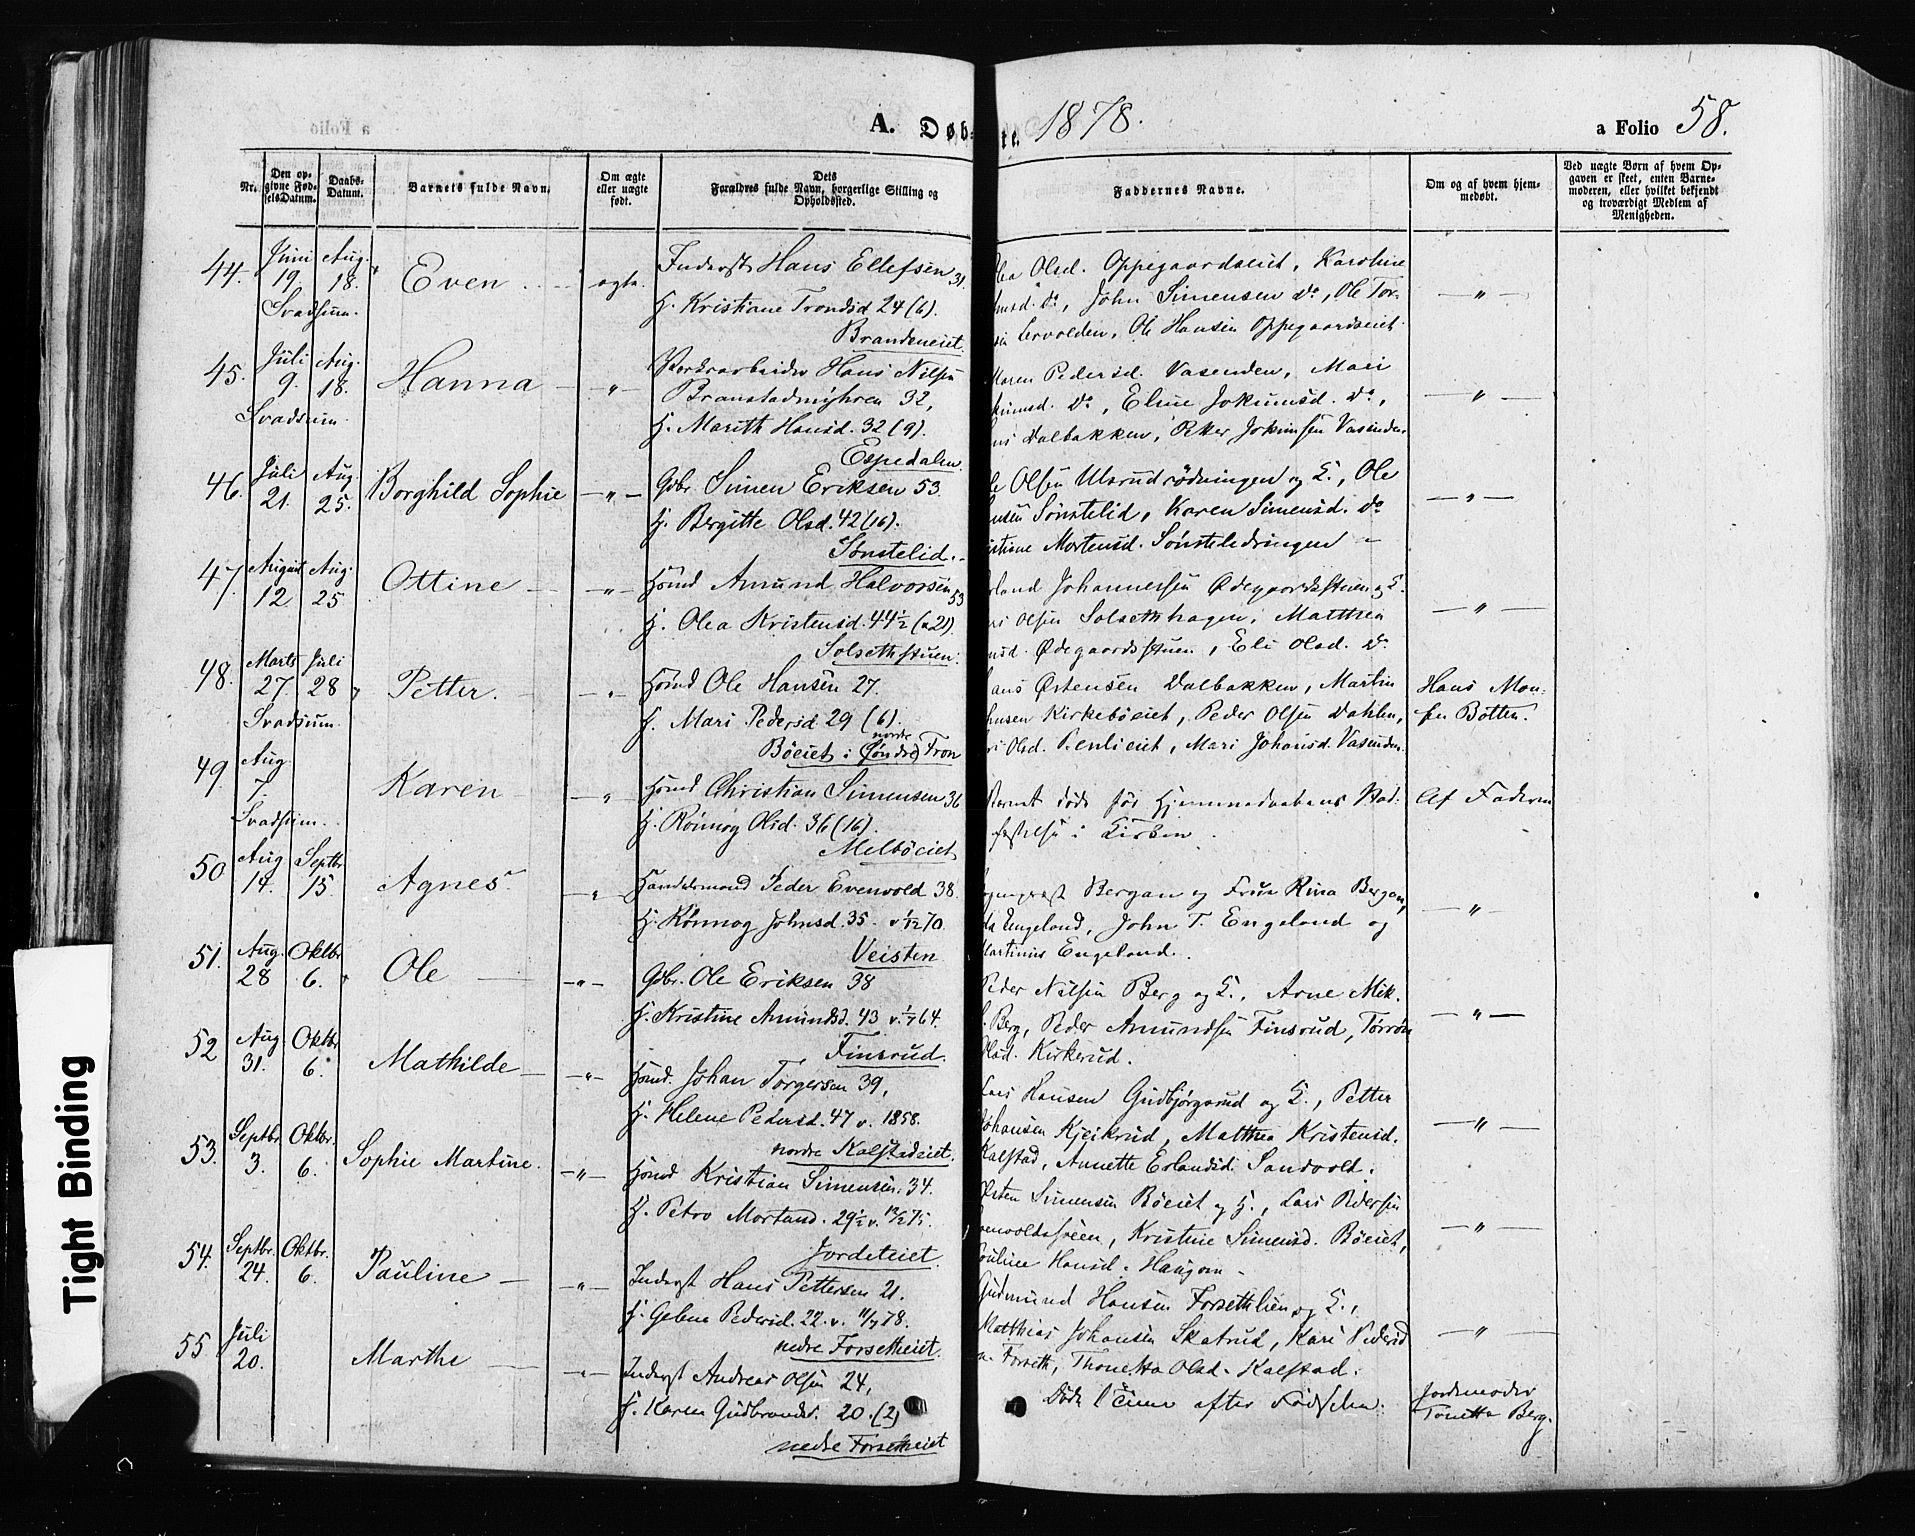 a Folio 58.
A. Døb- te. 1878.
Nr.
Den opgivne FødselsDatum.
Daabs-Datum.
Barnets fulde Navn.
Om ægte eller uægte født.
Dets Forældres fulde Navn, borgerlige Stilling og Opholdssted.
Faddernes Navne.
Om og af hvem hjemmedøbt.
Ved uægte Børn af hvem Opgaven er skeet, enten Barnemoderen, eller hvilket bekjendt og troværdigt Medlem af Menigheden.
44. Juni 19. Aug. 18. Even ægte. Inderst Hans Ellefsen 31.
Svadsum. H. Kristiane Trondsd 24 (6).
Brandeneiet.
Olsd. Oppegaardseiet, Karoline
do, John Simensen do, Ole Tor-
Ole Hansen Oppegaardseiet.
— " —
45. Juli 9. Aug. 18. Hanna — " — Hans Nilsen
Svadsum. Branstadmyhren 32,
H. Marith Hansd. 32 (9).
Espedalen.
Maren Pedersd. Vasenden, Mari
do, Eline Jokumsd. do,
Dalbakken, Peter Jokumsen Vasenden.
— " —
46. Juli 21. Aug. 25. Borghild Sophie — " — Gbr. Simen Eriksen 53.
H. Bergitte Olsd. 42 (16).
Sønstelid.
Olsen Ulsrudrødningen og K., Ole
Sønstelid, Karen Simensd. do
Mortensd. Sønsteledringen
— " —
47. August 12 Aug. 25 Ottine — " — Hsmd Amund Halvorsen 53
H. Olea Kristensd. 44½ (21).
Solsethstuen.
Johannessen Ødegaardsstuen og K.
Olsen Solsethhagen, Matthea
Ødegaardsstuen, Eli Olsd. do
— " —
48. Marts 27 Juli 28 Petter. — " — Hsmd Ole Hansen 27.
Svadsum. H. Mari Pedersd 29 (6).
Bøeiet i Søndre nordre Fron
Østensen Dalbakken, Martin
Kirkebøeiet, Peder Olsen Dahlen,
Olsd. Penlieiet, Mari Johansd. Vasenden.
Hans Mon-
sen Botten.
49. Aug. 7. Karen — " — Hsmd Christian Simensen 36
Svadsum. H. Rønnog Olsd. 36 (16).
Melbøeiet
Barnet døde før Hjemmedaabens Stad-
fæstelse i Kirken.
Af Faderen
50 Aug 14. Septbr 15. Agnes. — " — Handelsmand Peder Evenvold 38.
H. Rønnog Johnsd. 35. v. 1/12 70.
Veisten
Sogneprest Bergan og Frue Rina Bergan,
Engeland, John T. Engeland og
Martinus Engeland.
— " —
51. Aug. 28 Oktbr 6. Ole — " — Gbr. Ole Eriksen 38
H. Kristine Amundsd. 43 v. 1/7 64.
Finsrud.
Peder Nilsen Berg og K., Arne Mik.
Berg, Peder Amundsen Finsrud, Tørrøn
Olsd. Kirkerud.
— " —
52 Aug. 31. Oktbr 6. Mathilde — " — Hsmd. Johan Torgersen 39,
H. Helene Pedersd. 47 v. 1858.
nordre Kalstadeiet.
Lars Hansen Gudbjørgsrud og K., Petter
Johansen Kjeikrud, Matthea Kristensd.
Kalstad, Annette Erlandsd. Sandvold.
— " —
53. Septbr 3. Oktbr. 6. Sophie Martine. — " — Hsmd Kristian Simensen. 34.
H. Petro Mortensd. 29½ v.
Jordeteiet.
Østen Simensen Bøeiet og H., Lars Pedersen
Kristine Simensd. Bøeiet,
Pauline Hansd. Haugen
— " —
54. Septbr. 24. Oktbr. 6. Pauline — " — Inderst Hans Pettersen 21.
H. Gelena Pedersd. 22. v. 11/7 78.
nedre Forsetheiet.
Gudmund Hansen Forsethlien og K.,
Matthias Johansen Skatrud, Kari Pedersd
Forseth, Thonetta Olsd. Kalstad.
— " —
55. Juli 20. Marthe — " — Inderst Andreas Olsen 24,
H. Karen Gudbrandsd. 20. (2)
nedre Forsetheiet
Døde 1 Time efter Fødselen.
Jordemoder
Tonetta Berg.
Tight Binding